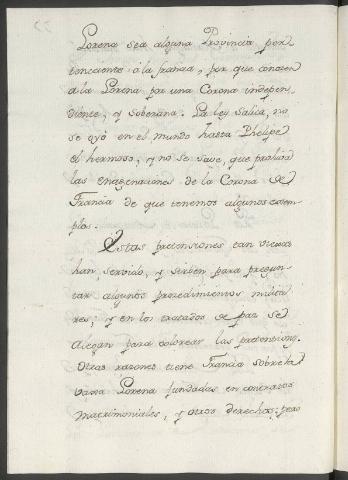 Lorena sea alguna Provincia per
teneciente á la francia, por que conocen
á la Lorena por una Corona indepen
diente, y soberana. La ley Salica, no
se oyó en el mundo hasta Phelipe
el hermoso, y no se save, que prohiva
las enagenaciones de la Corona de
Francia de que tenemos algunos exem
plos.
Estas pretensiones tan viexas
han servido, y sirben para pregun
tar algunos procedimientos milita
res; y en los tratados de paz se
alegan para colorear las pretensions.
Otras razones tiene Francia sobre la
Lorena fundadas en contratos
matrimoniales, y otros derechos; pero